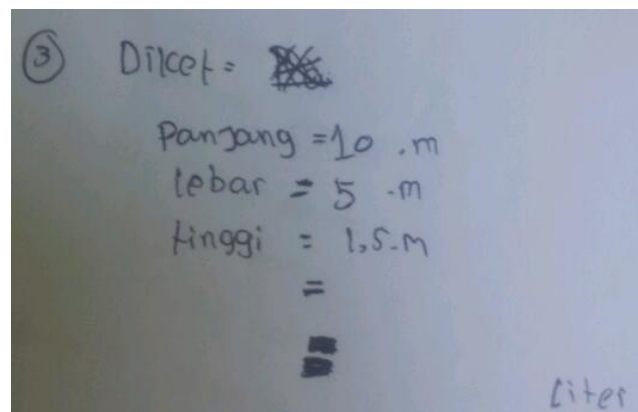 ③ Diket =
Panjang = 10 .m
lebar = 5 .m
tinggi = 1,5.m
=
=
Liter